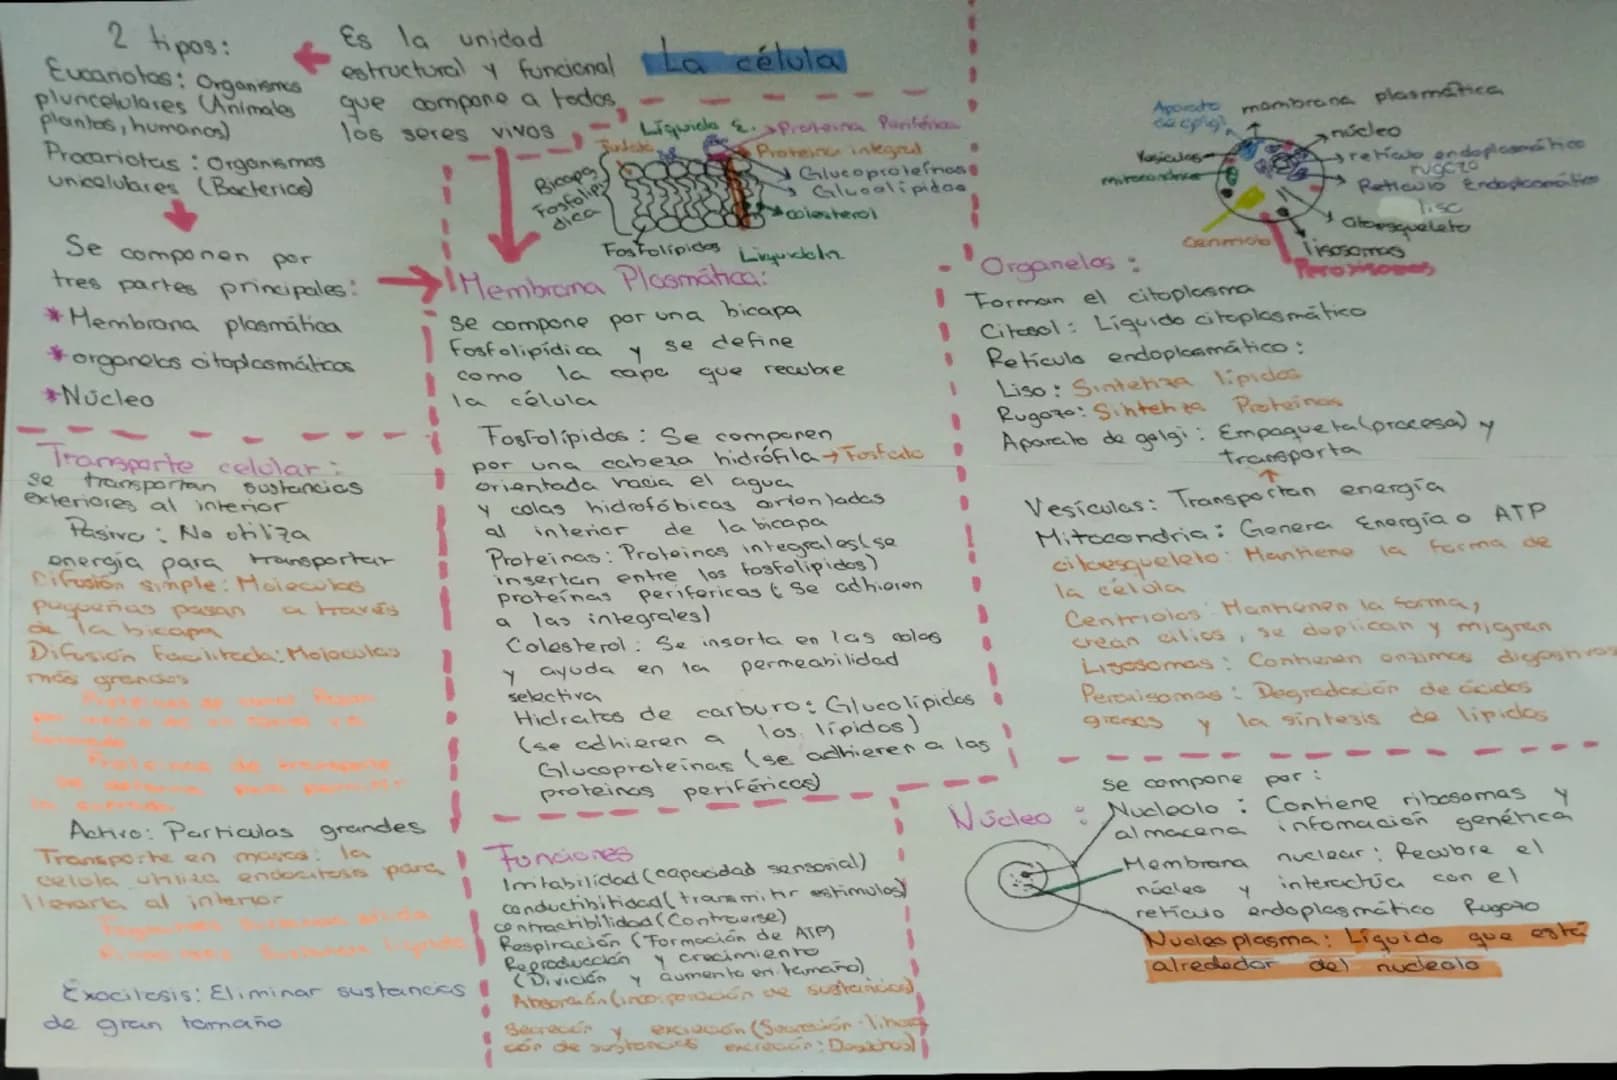 La célula
Es la unidad
estructural y funcional
que compone a todos
los seres vivos
2 tipos:
Eucariotas: Organismos
pluricelulares (Animales
plantas, humanos)
Procariotas: Organismos
unicelulares (Bacterias)
Se componen por
tres partes principales:
* Membrana plasmática
* organelos citoplasmáticos
* Núcleo
Transporte celular:
se transportan sustancias
exteriores al interior
Pasivo: No utiliza
energía para transportar
Difusión simple: Moleculas
pequeñas pasan a través
de la bicapa
Difusión Facilitada: Moleculas
más grandes
Activo: Particulas grandes
Transporte en masa: la
celula utiliza endocitosis para
llevarla al interior
Exocitosis: Eliminar sustancias
de gran tamaño
Líquido E.
Proteina Periférica
Fosfato
Proteina integral
Glucoproteínas
Glucolípidos
colesterol
Bicapa
Fosfolipí
dica
Fosfolípidos
Membrana Plasmática:
se compone por una bicapa
fosfolipídica y se define
como la capa que recubre
la célula
Fosfolípidos: Se componen
por una cabeza hidrófila → Fosfato
orientada hacia el agua
y colas hidrofóbicas orientadas
al interior de la bicapa
Proteinas: Proteinas integrales (se
insertan entre los fosfolípidos)
proteínas perifericas (Se adhieren
a las integrales)
Colesterol: Se inserta en las colas
y ayuda en la permeabilidad
selectiva
Hidratos de carburo: Glucolípidos
(se adhieren a los lípidos)
Glucoproteínas (se adhieren a las
proteinas periféricas)
Funciones
Irritabilidad (capacidad sensorial)
conductibitidad (transmitir estimulos)
contractibilidad (Contraerse)
Respiración (Formación de ATP)
Reproducción y crecimiento
(División y aumento en tamaño)
Absorción (incorporación de sustancias)
Secreción y excreción (Secreción: libera
ción de sustancias excreción: Desechos)
Aparato
de golgi
membrana plasmática
núcleo
Vesículas
retículo endoplasmático
rugozo
mitocondria
Retículo Endoplasmático
liso
citoesqueleto
Centriolo
lisosomas
Peroxisomas
Organelos:
Forman el citoplasma
Citosol: Líquido citoplasmático
Retículo endoplasmático:
Liso: Sintetiza lípidos
Rugozo: Sintetiza Proteínas
Aparato de golgi: Empaqueta (procesa) y
transporta
Vesículas: Transportan energía
Mitocondria: Genera Energía o ATP
citoesqueleto: Mantiene la forma de
la célula
Centriolos: Mantienen la forma,
crean cilios, se duplican y migran
Lisosomas: Contienen enzimas digestivas
Peroxisomas: Degradación de ácidos
grasos y la síntesis de lípidos
Núcleo:
se compone por:
Nucleolo: Contiene ribosomas y
almacena infomación genética
Membrana nuclear: Recubre el
núcleo y interactúa con el
retículo endoplasmático Rugozo
Nucleoplasma: Líquido que está
alrededor del nucleolo